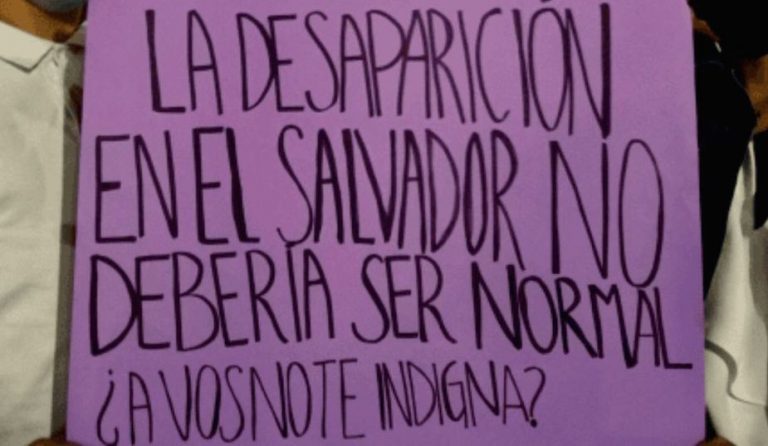 LA DESAPARICIÓN
EN EL SALVADOR NO
DEBERÍA SER NORMAL
¿A VOS NO TE INDIGNA?